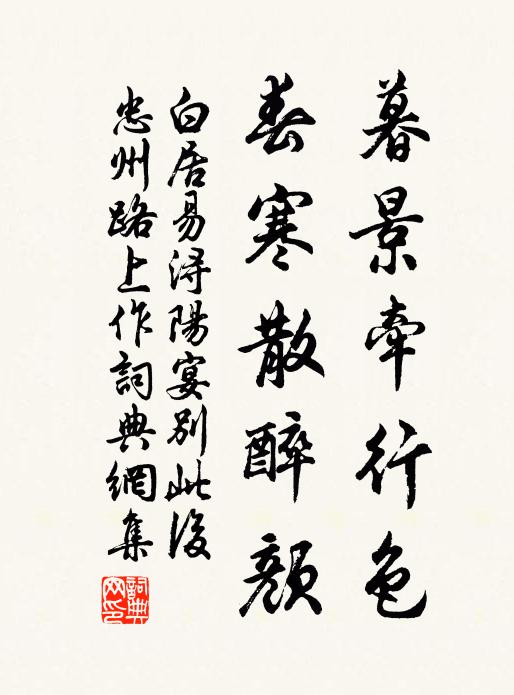 暮景牽行色
春寒散醉顏
白居易潯陽宴別此後
忠州路上作詞典網集
詞典網印